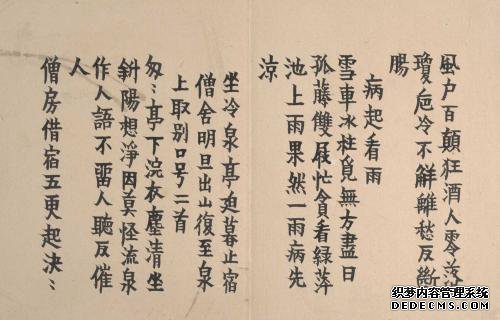 風户百顛狂酒人零落
瓊卮冷不解離愁反斷
腸
病起看雨
雪車冰柱覓無方盡日
孤藤雙屐忙貪看綠萍
池上雨果然一雨病先
涼
坐冷泉亭迫暮止宿
僧舍明旦出山復至泉
上取別口号二首
匆〻亭下浣衣塵清坐
斜陽想淨因莫怪流泉
作人語不畱人聽反催
人
僧房借宿五更起決〻
织梦内容管理系统
DEDECMS.COM